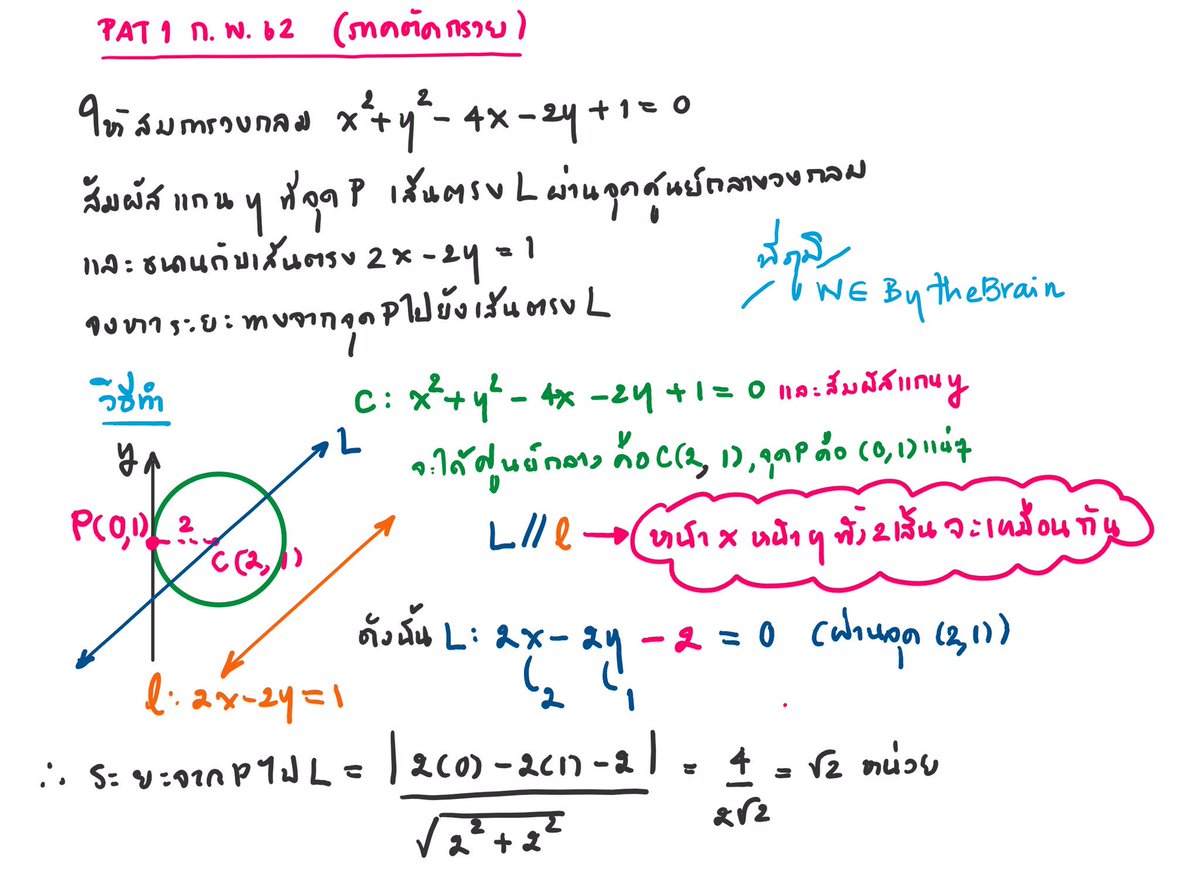 PAT 1 ก.พ. 62 (ภาคตัดกรวย)
ให้สมการวงกลม x²+y²-4x-2y+1=0
สัมผัสแกน y ที่จุด P เส้นตรง L ผ่านจุดศูนย์กลางวงกลม
และขนานกับเส้นตรง 2x-2y=1
จงหาระยะทางจากจุด P ไปยังเส้นตรง L
พี่ภูมิ
WE By the Brain
วิธีทำ
C: x²+y²-4x-2y+1=0 และสัมผัสแกน y
จะได้ศูนย์กลาง คือ C(2,1), จุด P คือ (0,1) แน่ๆ
y
L
P(0,1)
2
C(2,1)
l: 2x-2y=1
L//l → หน้า x หน้า y ทั้ง 2 เส้น จะเหมือนกัน
ดังนั้น L: 2x-2y-2=0 (ผ่านจุด (2,1))
2 1
∴ ระยะจาก P ไป L = |2(0)-2(1)-2| / √(2²+2²) = 4/2√2 = √2 หน่วย